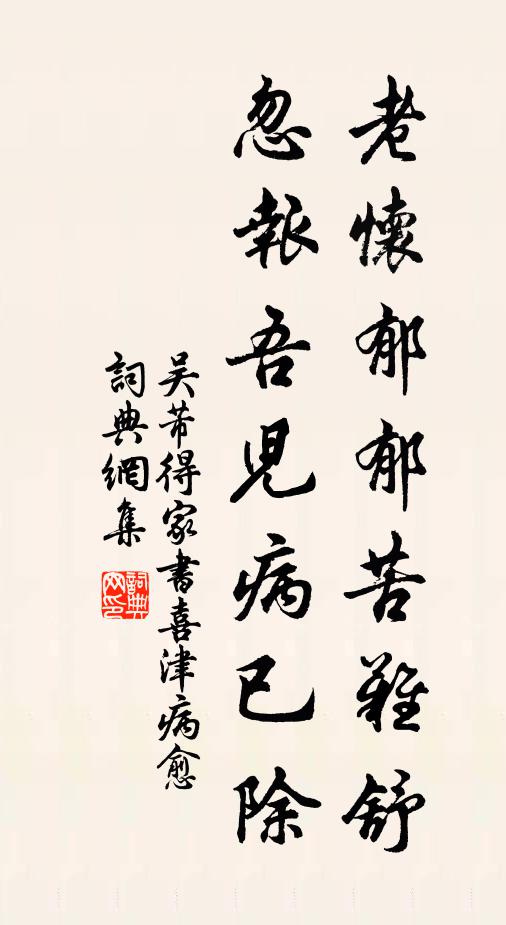 老懷郁郁苦難舒
忽報吾兒病已除
吴芾得家書喜津病愈
詞典網集
詞典网印